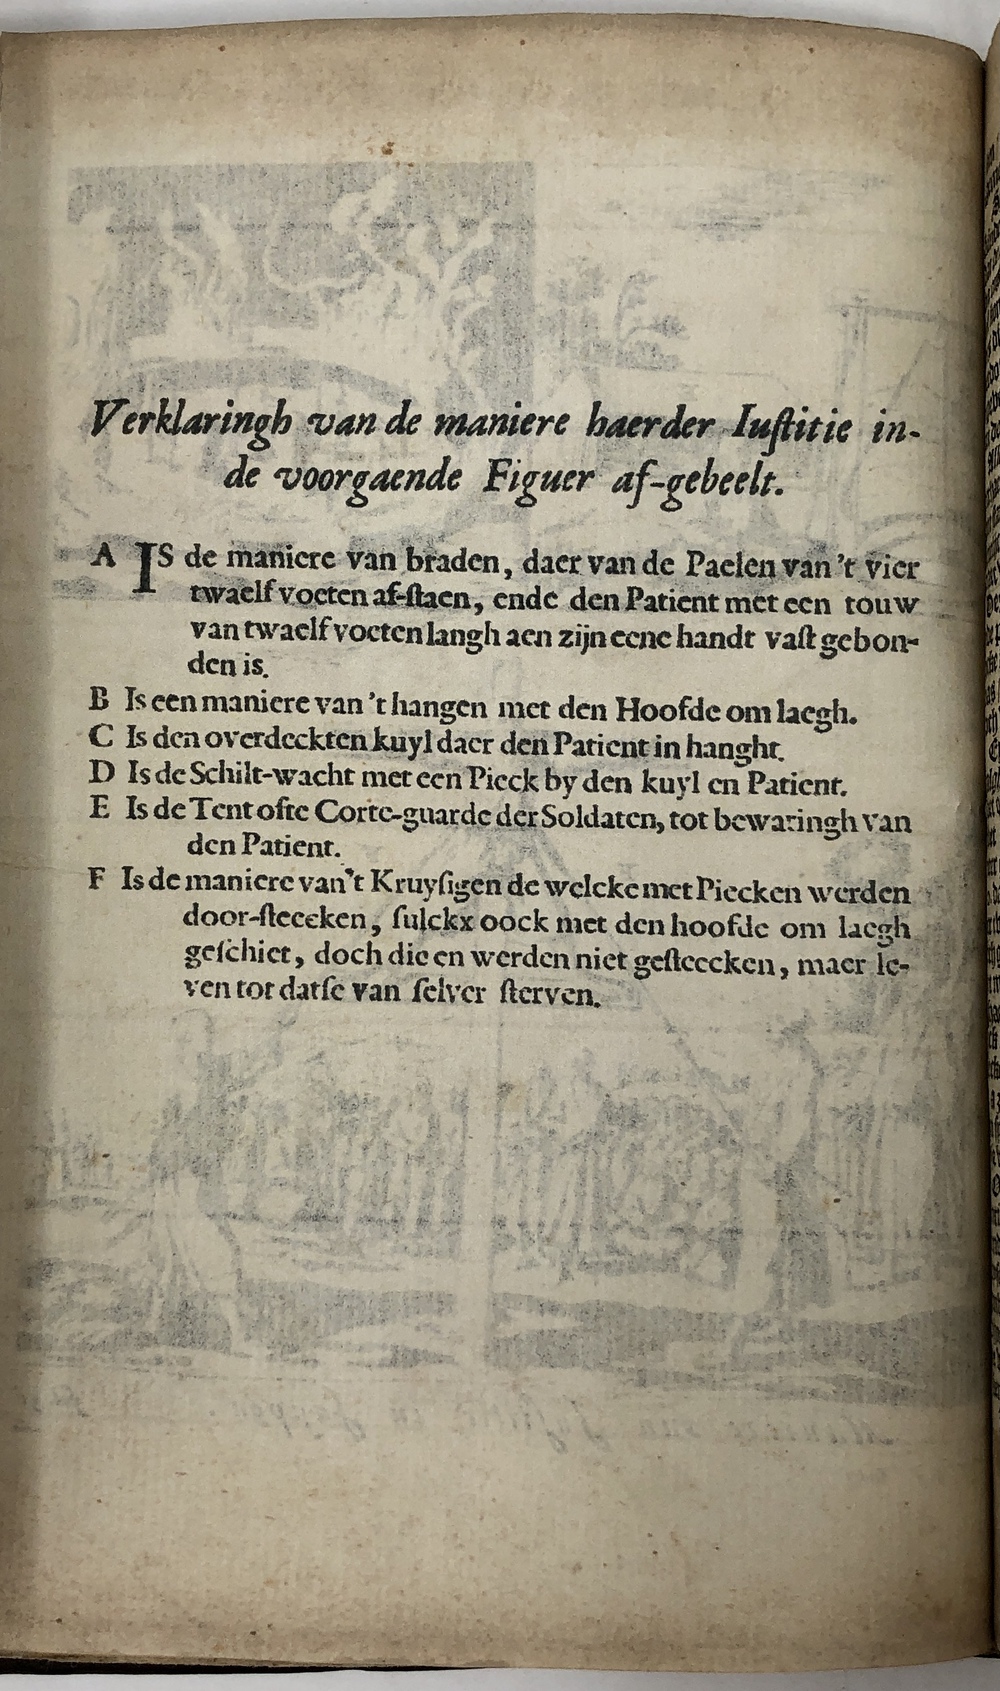 Verklaringh van de maniere haerder Iuſtitie in-
de voorgaende Figuer af-gebeelt.
A IS de maniere van braden, daer van de Paelen van't vier
twaelf voeten af-ſtaen, ende den Patient met een touw
van twaelf voeten langh aen zijn eene handt vaſt gebon-
den is.
B Is een maniere van 't hangen met den Hoofde om laegh.
C Is den overdeckten kuyl daer den Patient in hanght.
D Is de Schilt-wacht met een Pieck by den kuyl en Patient.
E Is de Tent ofte Corte-guarde der Soldaten, tot bewaringh van
den Patient.
F Is de maniere van't Kruyſigen de welcke met Piecken werden
door-ſteecken, ſulckx oock met den hoofde om laegh
geſchiet, doch die en werden niet geſteecken, maer le-
ven tot datſe van ſelver ſterven.